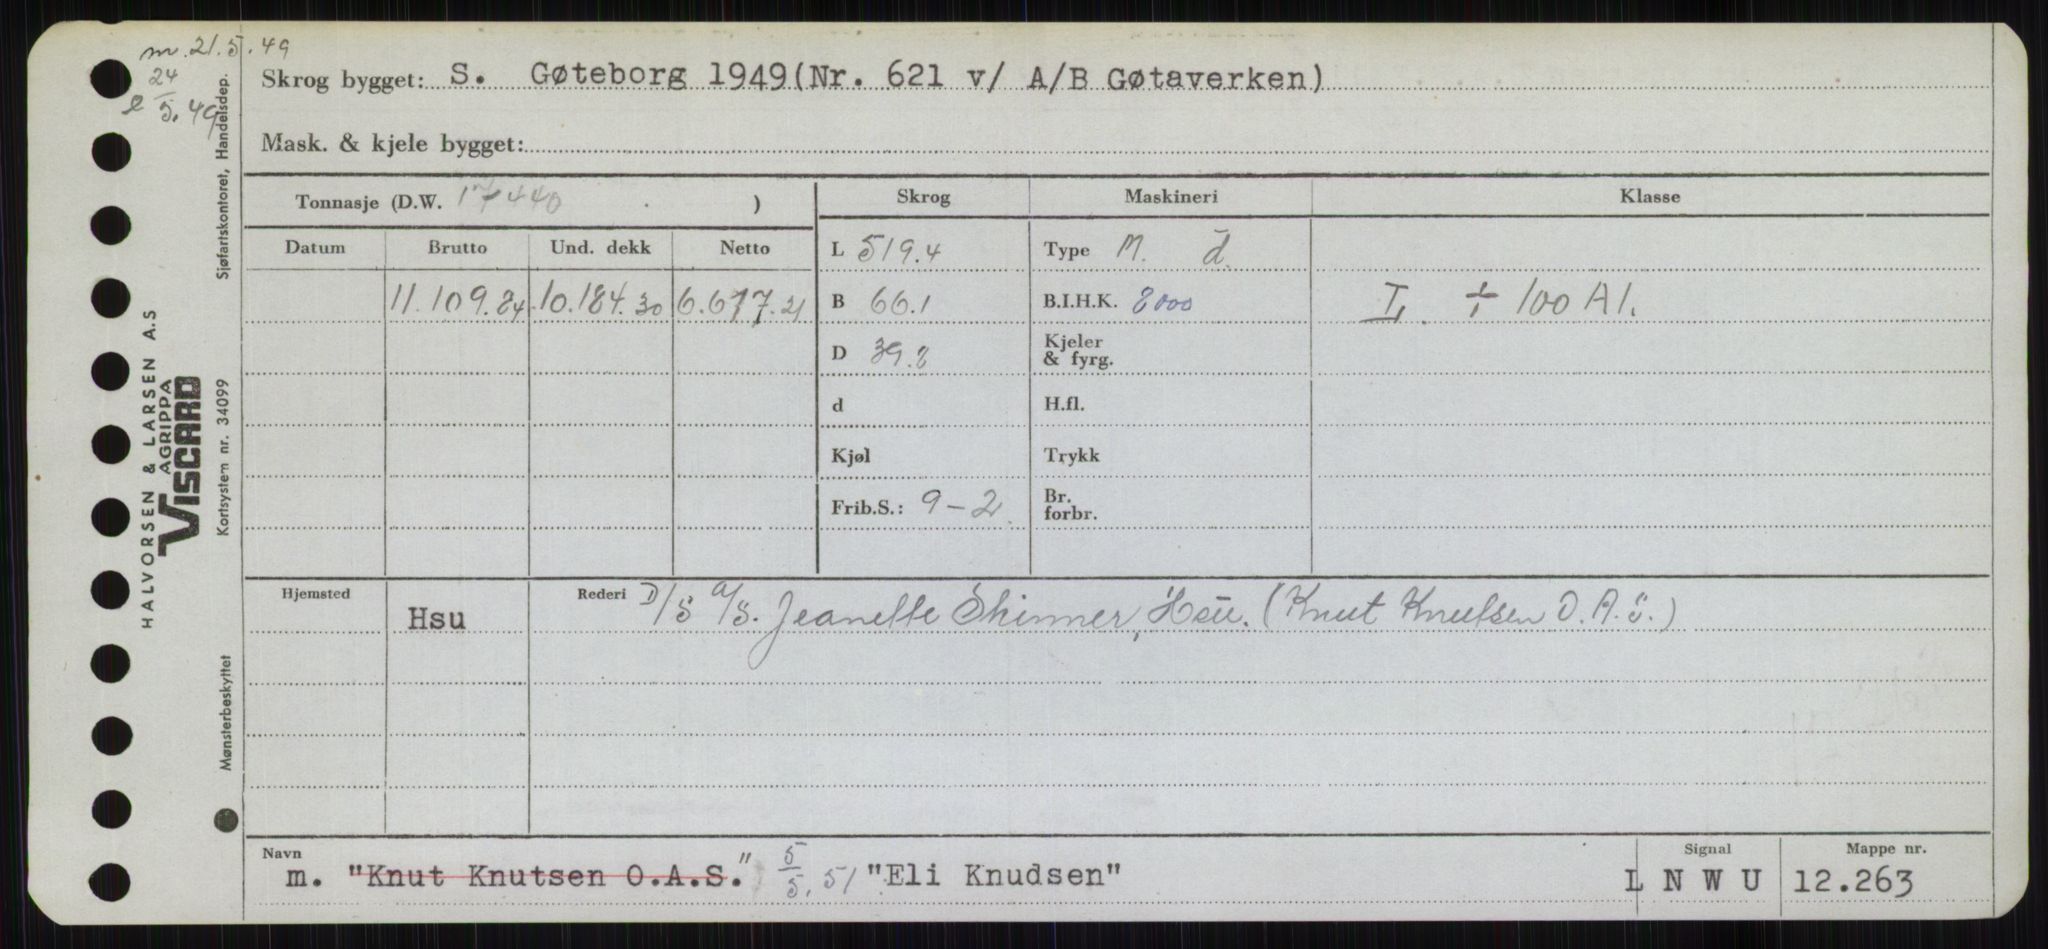 m. 21.5.49
e 24/5.49
Skrog bygget: S. Gøteborg 1949(Nr. 621 v/ A/B Gøtaverken)
Mask. & kjele bygget:
Tonnasje (D.W. 17440 )
Skrog Maskineri Klasse
Datum Brutto Und. dekk Netto
L 519.4 Type M. d.
11.109.84 10.184.30 6.677.21 B 66.1 B.I.H.K. 8000 I, ÷ 100 A1.
D 39.8 Kjeler & fyrg.
d H.fl.
Kjøl Trykk
Frib.S.: 9-2 Br. forbr.
Hjemsted Hsu Rederi D/S A/S. Jeanette Skinner, Hsu. (Knut Knutsen O.A.S.)
Navn Signal Mappe nr.
m. "Knut Knutsen O.A.S." 5/5.51 "Eli Knudsen" L N W U 12.263
HALVORSEN & LARSEN A.S
AGRIPPA
VISCARD
Mønsterbeskyttet Kortsystem nr. 34099 Sjøfartskontoret, Handelsdep.